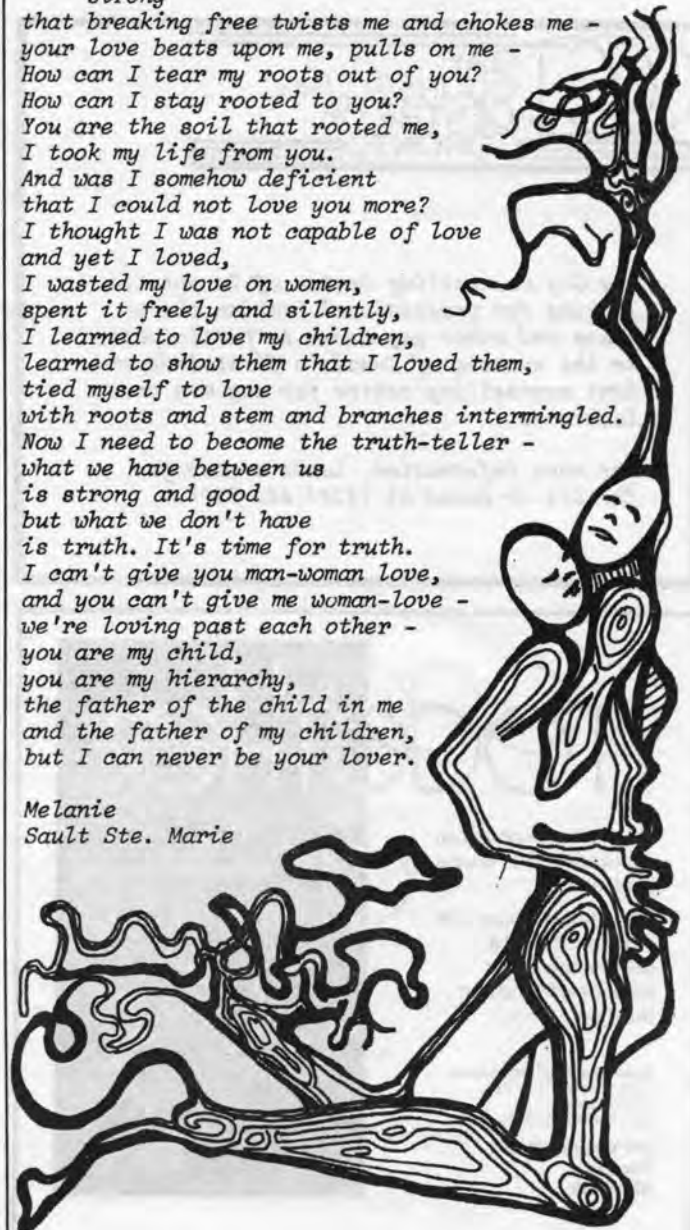 strong
that breaking free twists me and chokes me -
your love beats upon me, pulls on me -
How can I tear my roots out of you?
How can I stay rooted to you?
You are the soil that rooted me,
I took my life from you.
And was I somehow deficient
that I could not love you more?
I thought I was not capable of love
and yet I loved,
I wasted my love on women,
spent it freely and silently,
I learned to love my children,
learned to show them that I loved them,
tied myself to love
with roots and stem and branches intermingled.
Now I need to become the truth-teller -
what we have between us
is strong and good
but what we don't have
is truth. It's time for truth.
I can't give you man-woman love,
and you can't give me woman-love -
we're loving past each other -
you are my child,
you are my hierarchy,
the father of the child in me
and the father of my children,
but I can never be your lover.
Melanie
Sault Ste. Marie